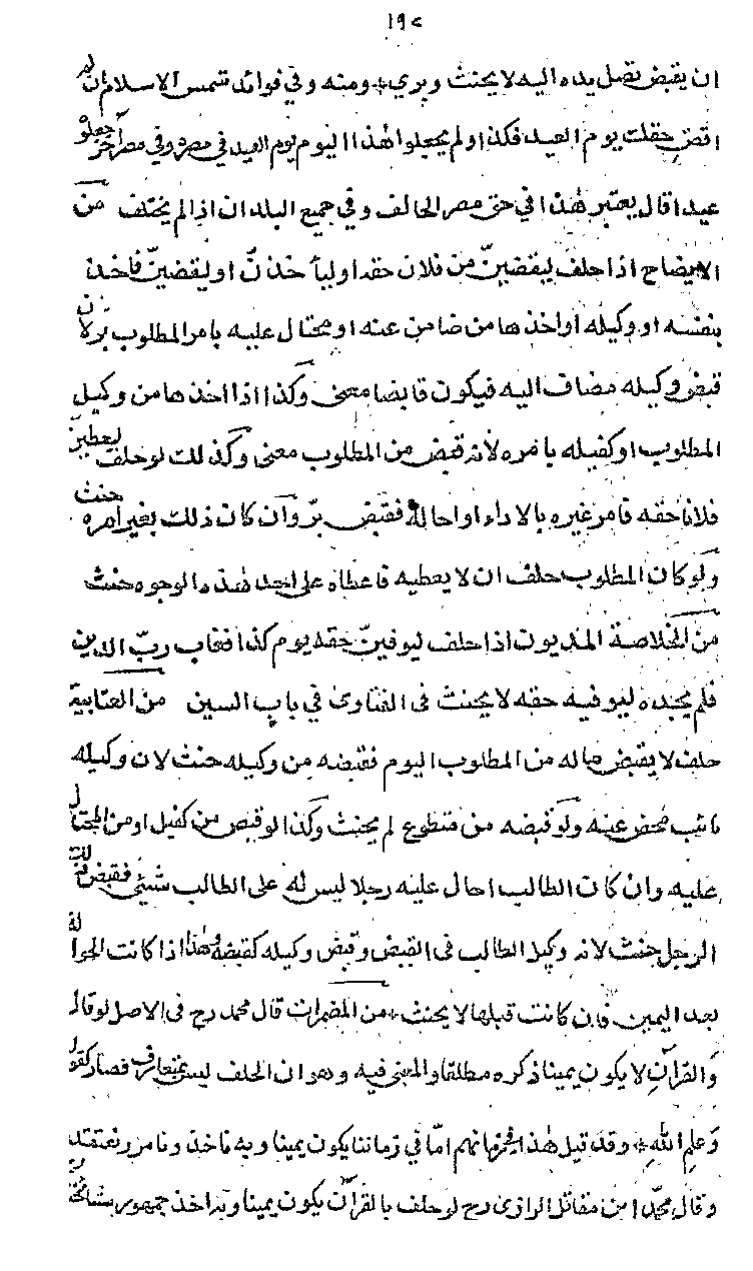 ١٩٢
ان يقبض تصل يده اليه لا يحنث وبرئ ومنه وفي فوائد شمس الاسلام ان لم
اقض حقك يوم العيد فكذا ولم يجعلوا هذا اليوم يوم العيد في مصره وفي مصر آخر جعلوه
عيدا قال يعتبر هذا في حق مصر الحالف وفي جميع البلدان اذا لم يختلف من
الايضاح اذا حلف ليقبضن من فلان حقه او ليأخذن او ليقضين فاخذ
بنفسه او وكيله او اخذها من ضامن عنه او محتال عليه بامر المطلوب بر لان
قبض وكيله مضاف اليه فيكون قابضا معنى وكذا اذا اخذها من وكيل
المطلوب او كفيله بامره لانه قبض من المطلوب معنى وكذلك لو حلف ليعطين
فلانا حقه فامر غيره بالاداء او احاله فقبض بر وان كان ذلك بغير امره حنث
ولو كان المطلوب حلف ان لا يعطيه فاعطاه على احد هذه الوجوه حنث
من الخلاصة المديون اذا حلف ليوفين حقه يوم كذا فغاب رب الدين
فلم يجده ليوفيه حقه لا يحنث في الفتاوى في باب السين من العتابية
حلف لا يقبض ماله من المطلوب اليوم فقبضه من وكيله حنث لان وكيله
نائب محض عنه ولو قبضه من متطوع لم يحنث وكذا لو قبض من كفيل او من المحتال
عليه وان كان الطالب احال عليه رجلا ليس له على الطالب شيئ فقبض ذلك
الرجل حنث لانه وكيل الطالب في القبض وقبض وكيله كقبضه وهذا اذا كانت الحوالة
بعد اليمين فان كانت قبلها لا يحنث من المضمرات قال محمد رح في الاصل لو قال
والقرآن لا يكون يمينا ذكره مطلقا والمعنى فيه وهو ان الحلف ليس بمتعارف فصار كقوله
وعلم الله وقد قيل هذا في زمانهم اما في زماننا يكون يمينا وبه ناخذ ونامر ونعتقد
وقال محمد بن مقاتل الرازى رح لو حلف بالقرآن يكون يمينا وبه اخذ جمهور مشائخنا